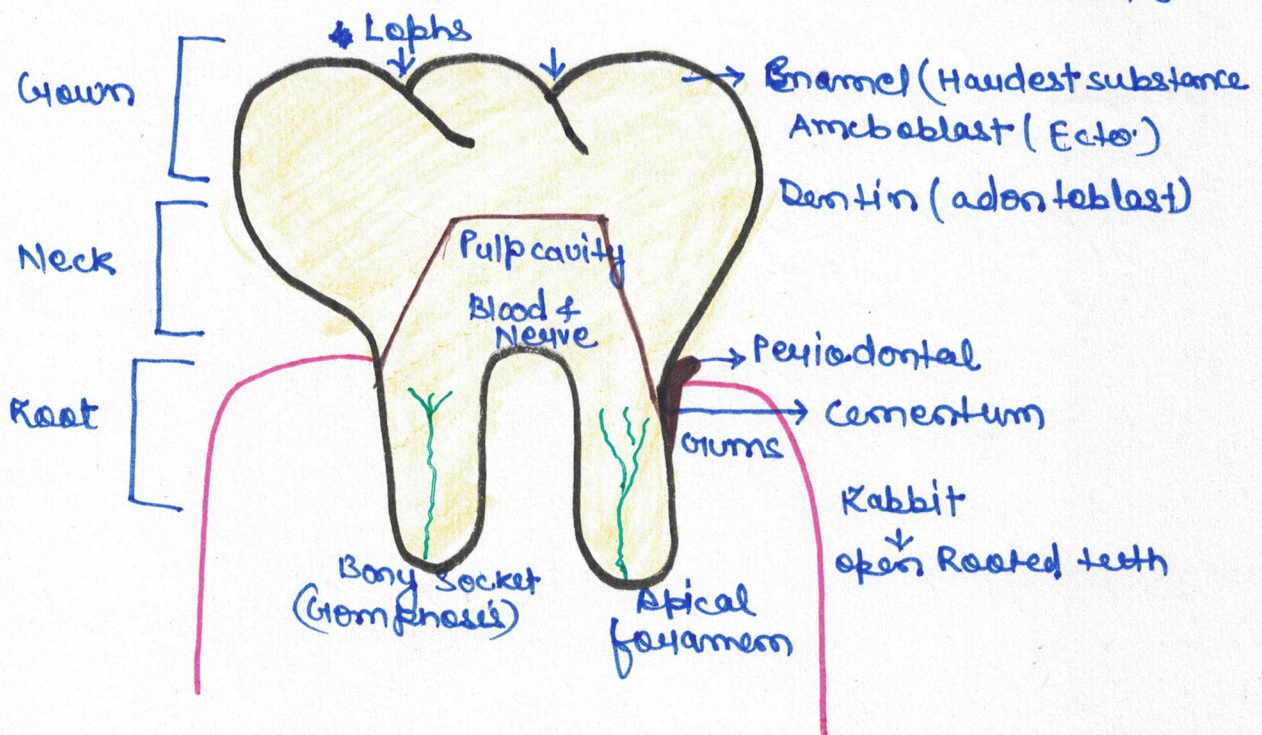 Lophs
Crown
Enamel (Hardest substance
Ameboblast (Ecto.)
Dentin (adontoblast)
Neck
Pulp cavity
Blood &
Nerve
Periodontal
Root
Cementum
Gums
Rabbit
open Rooted teeth
Bony Socket
(Gomphosis)
Apical
foramem